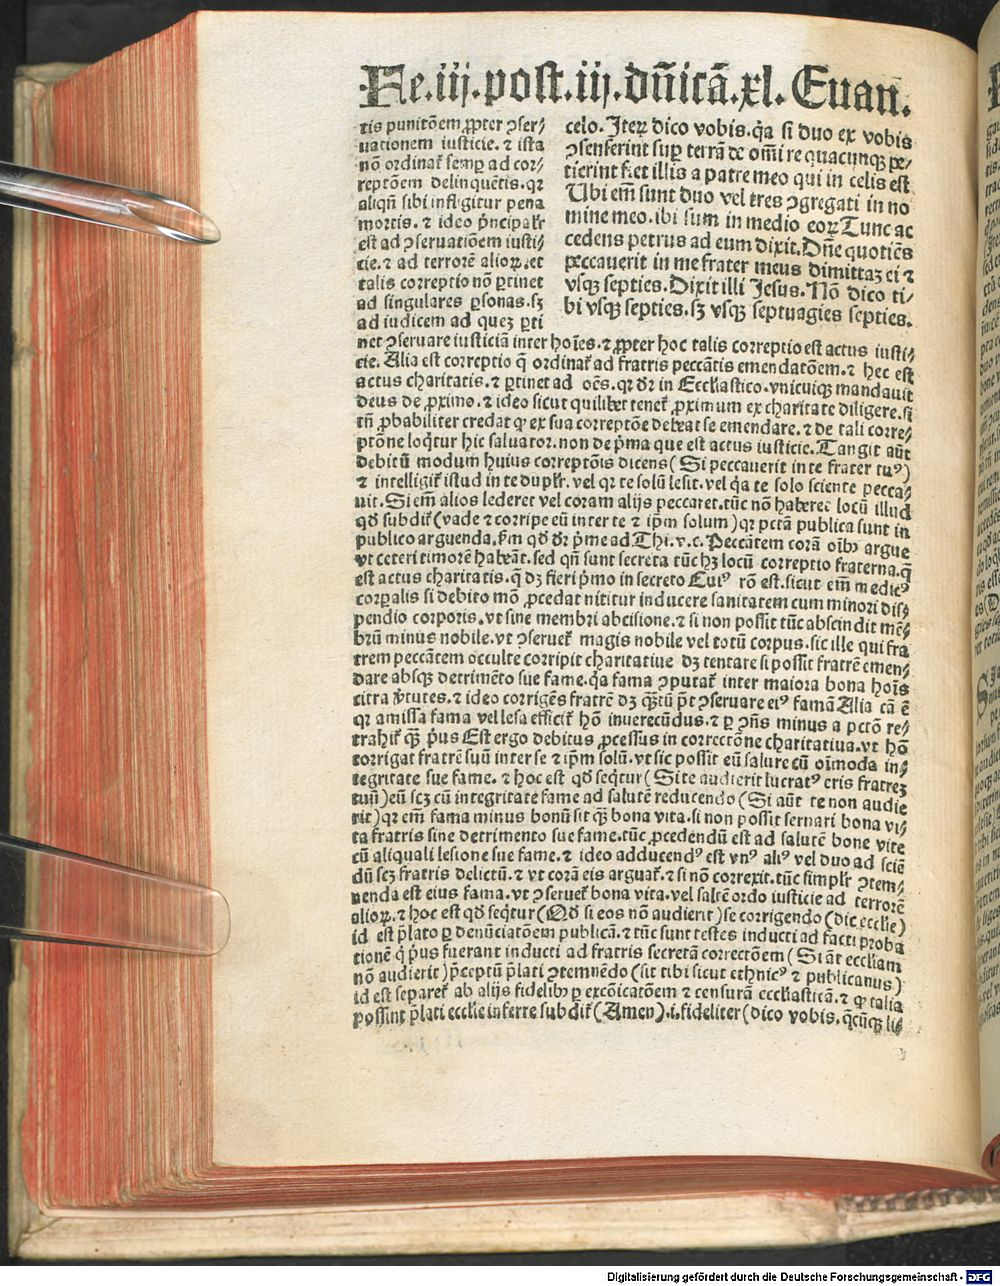 Fe.iij.post.iij.dñicã.xl. Euan.
tis punitõem ꝓpter ↄser⸗
uationem iusticie. ⁊ ista
nõ ordinat̃ semꝑ ad cor⸗
reptõem delinquẽtis. qꝛ
aliqñ sibi infligitur pena
mortis. ⁊ ideo p̃ncipalr̃
est ad ↄseruatiõem iusti⸗
cie. ⁊ ad terrorẽ alioꝝ. et
talis correptio nõ ꝑtinet
ad singulares ꝑsonas. sꝫ
ad iudicem ad queꝫ ꝑti
celo. Iteꝝ dico vobis. q̃a si duo ex vobis
ↄsenserint suꝑ terrã de om̃i re quacunqꝫ pe⸗
tierint fiet illis a patre meo qui in celis est
Ubi em̃ sunt duo vel tres ↄgregati in no
mine meo. ibi sum in medio eoꝝ Tunc ac
cedens petrus ad eum dixit. Dñe quotiẽs
peccauerit in me frater meus dimittaꝫ ei ⁊
vsqꝫ septies. Dixit illi Jesus. Nõ dico ti⸗
bi vsqꝫ septies. sꝫ vsqꝫ septuagies septies.
net ↄseruare iusticiã inter hoĩes. ⁊ ꝓpter hoc talis correptio est actus iusti⸗
cie. Alia est correptio q̃ ordinat̃ ad fratris peccãtis emendatõem. ⁊ hec est
actus charitatis. ⁊ ꝑtinet ad oẽs. qꝛ dr̃ in Eccl̃iastico. vnicuiqꝫ mandauit
deus de ꝓximo. ⁊ ideo sicut quilibet tenet̃ ꝓximum ex charitate diligere. si
tñ ꝓbabiliter credat ꝙ ex sua correptõe debeat se emendare. ⁊ de tali corre⸗
ptõne loq̃tur hic saluator. non de p̃ma que est actus iusticie. Tangit aũt
debitũ modum huius correptõis dicens (Si peccauerit in te frater tuꝰ)
⁊ intelligit̃ istud in te duplr̃. vel qꝛ te solũ lesit. vel q̃a te solo sciente pecca⸗
uit. Si em̃ alios lederet vel coram alijs peccaret. tũc nõ haberet locũ illud
qđ subdit̃ (vade ⁊ corripe eũ inter te ⁊ ip̃m solum) qꝛ pctã publica sunt in
publico arguenda. ẜm qđ dr̃ p̃me ad Thi. v. c. Peccãtem corã oĩbꝰ argue
vt ceteri timorẽ habeãt. sed qñ sunt secreta tũc hꝫ locũ correptio fraterna. q̃
est actus charitatis. q̃ dꝫ fieri p̃mo in secreto Cuiꝰ rõ est. sicut em̃ medicꝰ
corꝑalis si debito mõ ꝓcedat nititur inducere sanitatem cum minori dis⸗
pendio corporis. vt sine membri abcisione. ⁊ si non possit tũc abscindit mẽ⸗
brũ minus nobile. vt ↄseruet̃ magis nobile vel totũ corpus. sic ille qui fra
trem peccãtem occulte corripit charitatiue dꝫ tentare si possit fratrẽ emen⸗
dare absqꝫ detrimẽto sue fame. q̃a fama ↄputat̃ inter maiora bona hoĩs
citra ṽtutes. ⁊ ideo corrigẽs fratrẽ dꝫ q̃ꝫtũ põt ↄseruare eiꝰ famã Alia cã ẽ
qꝛ amissa fama vel lesa efficit̃ hõ inuerecũdus. ⁊ ꝑ ↄñs minus a pctõ re⸗
trahit̃ q̃ꝫ p̃us Est ergo debitus ꝓcessus in correctõne charitatiua. vt hõ
corrigat fratrẽ suũ inter se ⁊ ip̃m solũ. vt sic possit eũ saluare cũ oĩmoda in⸗
tegritate sue fame. ⁊ hoc est qđ seq̃tur (Si te audierit lucratꝰ eris fratreꝫ
tuũ) eũ scꝫ cũ integritate fame ad salutẽ reducendo (Si aũt te non audie
rit) qꝛ em̃ fama minus bonũ sit q̃ꝫ bona vita. si non possit seruari bona vi⸗
ta fratris sine detrimento sue fame. tũc ꝓcedendũ est ad salutẽ bone vite
cũ aliquali lesione sue fame. ⁊ ideo adducendꝰ est vnꝰ aliꝰ vel duo ad sciẽ
dũ scꝫ fratris delictũ. ⁊ vt corã eis arguat̃. ⁊ si nõ correxit. tũc simplr̃ ↄtem⸗
nenda est eius fama. vt ↄseruet̃ bona vita. vel saltẽ ordo iusticie ad terrorẽ
alioꝝ. ⁊ hoc est qđ seq̃tur (Qđ si eos nõ audierit) se corrigendo (dic eccl̃ie)
id est p̃lato ꝑ denũciatõem publicã. ⁊ tũc sunt testes inducti ad facti proba
tionẽ q̃ p̃us fuerant inducti ad fratris secretã correctõem (Si aũt eccl̃iam
nõ audierit) p̃ceptũ p̃lati ↄtemnẽdo (sit tibi sicut ethnicꝰ ⁊ publicanus)
id est separet̃ ab alijs fidelibꝰ ꝑ excõicatõem ⁊ censurã eccl̃iasticã. ⁊ ꝙ talia
possint p̃lati eccl̃ie inferre subdit̃ (Amen) .i. fideliter (dico vobis. q̃cũqꝫ li⸗
Digitalisierung gefördert durch die Deutsche Forschungsgemeinschaft - DFG